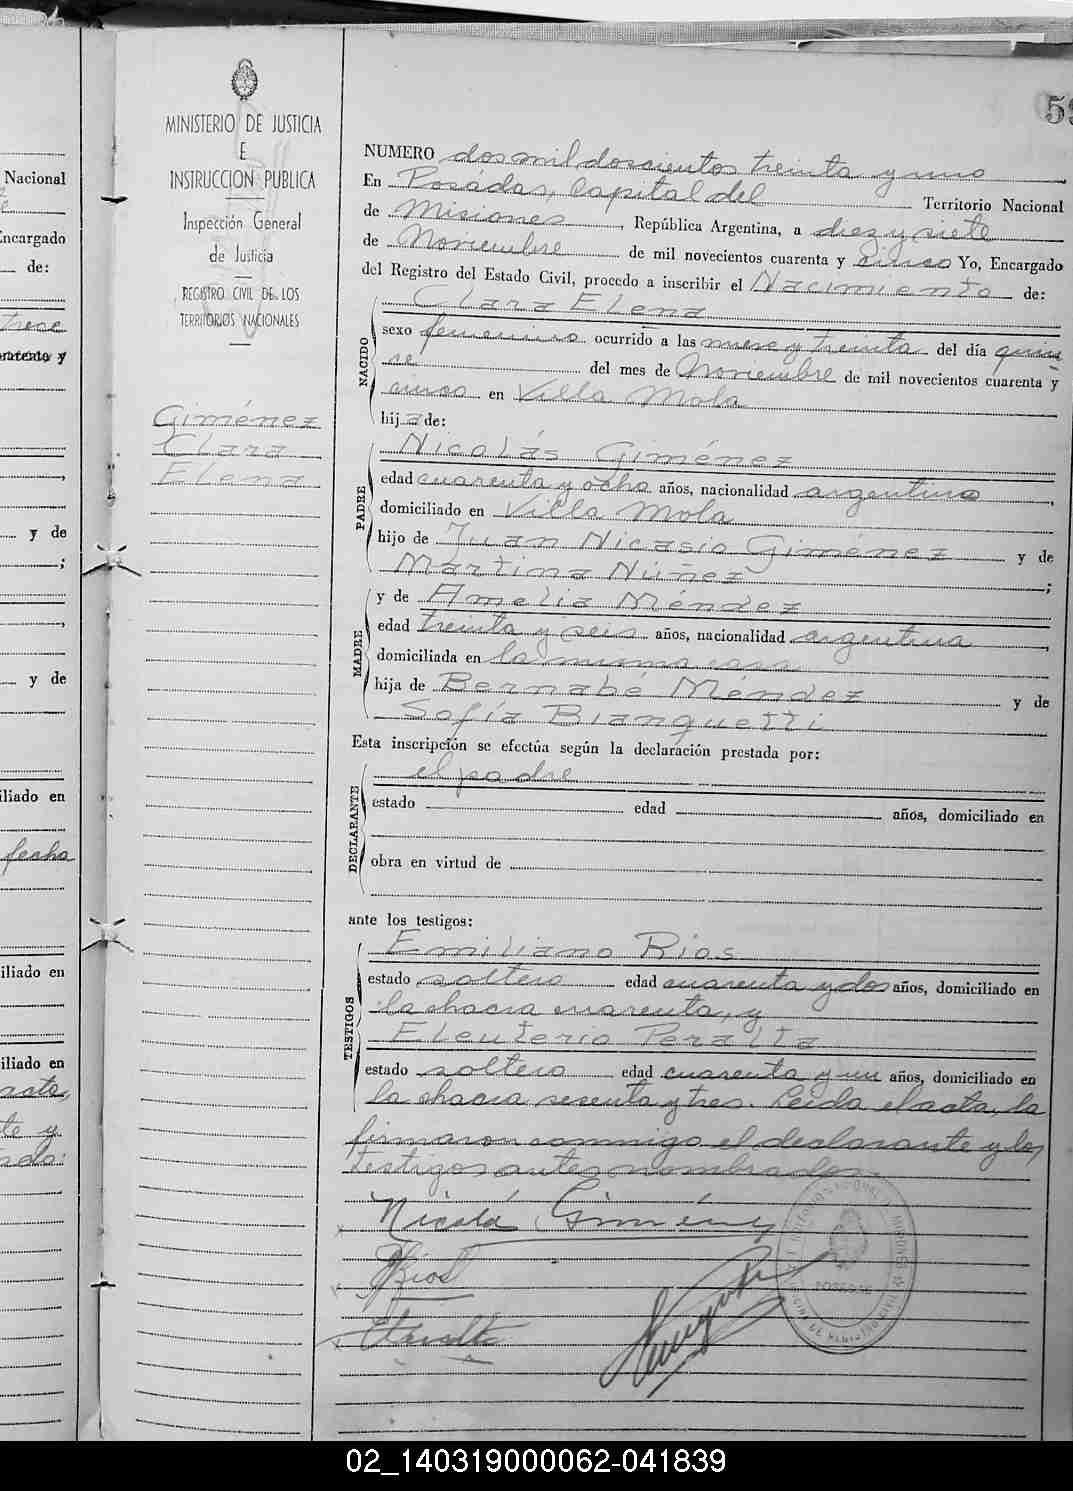 Nacional
Encargado
de:
trece
cuarenta y
y de
;
y de
iliado en
fecha
iliado en
iliado en
te y
MINISTERIO DE JUSTICIA
E
INSTRUCCION PUBLICA
Inspección General
de Justicia
REGISTRO CIVIL DE LOS
TERRITORIOS NACIONALES
Giménez
Clara
Elena
NUMERO dos mil doscientos treinta y uno
En Posadas, Capital del Territorio Nacional
de Misiones, República Argentina, a diez y siete
de Noviembre de mil novecientos cuarenta y cinco Yo, Encargado
del Registro del Estado Civil, procedo a inscribir el Nacimiento de:
NACIDO
Clara Elena
sexo femenino ocurrido a las nueve y treinta del día quin
ce del mes de Noviembre de mil novecientos cuarenta y
cinco en Villa Mola
hija de:
PADRE
Nicolás Giménez
edad cuarenta y ocho años, nacionalidad argentino,
domiciliado en Villa Mola
hijo de Juan Nicasio Giménez y de
Martina Núñez;
MADRE
y de Amelia Méndez
edad treinta y seis años, nacionalidad argentina,
domiciliada en la misma casa
hija de Bernabé Méndez y de
Sofía Bianquetti
Esta inscripción se efectúa según la declaración prestada por:
DECLARANTE
el padre
estado edad años, domiciliado en
obra en virtud de
ante los testigos:
TESTIGOS
Emiliano Rios
estado soltero edad cuarenta y dos años, domiciliado en
la chacra cuarenta, y
Eleuterio Peralta
estado soltero edad cuarenta y un años, domiciliado en
la chacra sesenta y tres. Leida el acta, la
firmaron conmigo el declarante y los
testigos antes nombrados.
Nicolá Giménz
ERios
EPeralta
POSADAS
02_140319000062-041839